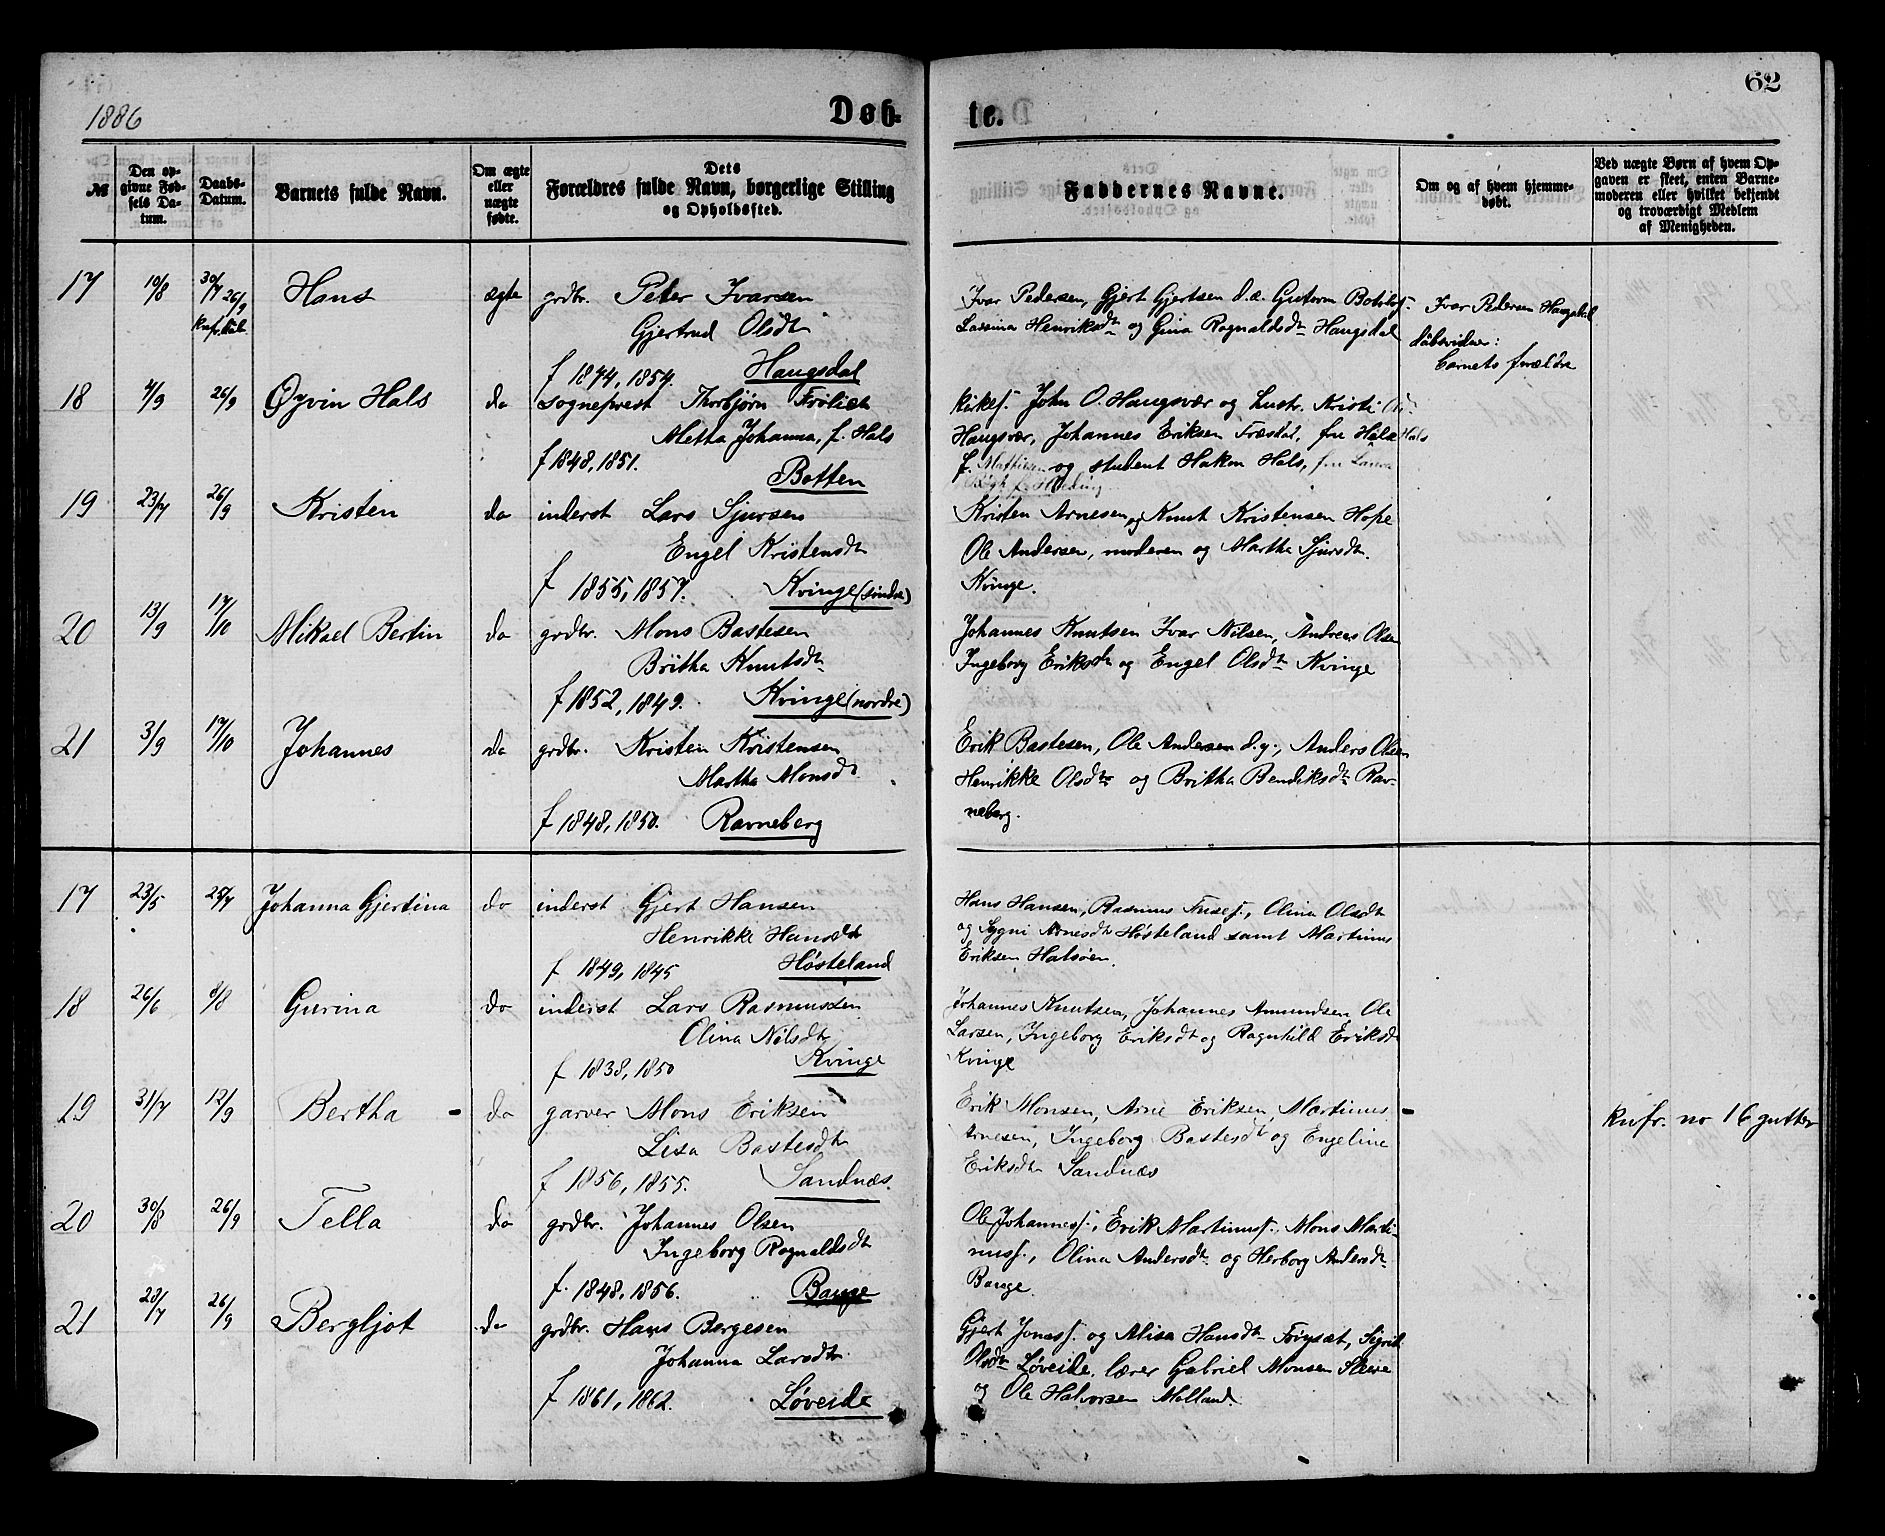 1886
Døb-
te.
62
№
Den op-
givne Fød-
sels Da-
tum.
Daabs-
Datum.
Barnets fulde Navn.
Om ægte
eller
uægte
fødte.
Dets
Forældres fulde Navn, borgerlige Stilling
og Opholdssted.
Faddernes Navne.
Om og af hvem hjemme-
døbt.
Ved uægte Børn af hvem Op-
gaven er skeet, enten Barne-
moderen eller hvilket bekjendt
og troværdigt Medlem
af Menigheden.
17
10/8
26/9
Hans
ægte
grdbr. Peter Ivarsen
Gjertrud Olsdtr
f 1844, 1854. Haugsdal
Ivar Pedersen, Gjert Gjertsen d.æ. Guttorm Botolfs.
Lassina Henriksdtr og Gina Ragnaldsdtr Haugsdal
Ivar Pedersen Haugsdal
dåbsvidner:
barnets forældre
18
4/9
26/9
Øyvin Hals
do
sogneprest Thorbjørn Frölich
Metha Johanna, f. Hals
f 1848, 1851.
Botten
kirkes. John O. Haugsvær og hustr. Kristi
Haugsvær, Johannes Eriksen Træsdal, fru
og student Hakon Hals, fru Laura
19
23/7
26/9
Kristen
do
inderst Lars Sjursen
Engel Kristensdtr
f 1855, 1857. Kvinge (søndre)
Kristen Arnesen og Knut Kristensen Hope
Ole Andersen, moderen og Martha Sjursdtr.
Kvinge.
20
13/9
17/10
Mikael Bertin
do
grdbr. Mons Bastesen
Britha Knutsdtr
f 1852, 1849. Kvinge (nordre)
Johannes Knutsen Ivar Nilsen, Andreas Olsen
Ingeborg Eriksdtr og Engel Olsdtr Kvinge
21
3/9
17/10
Johannes
do
grdbr. Kristen Kristensen
Martha Monsdtr
f 1848, 1850. Ravneberg
Erik Bastesen, Ole Andersen d.y., Anders Olsen
Henrikke Olsdtr og Britha Bendiksdtr Rav-
neberg.
17
23/5
25/7
Johanna Gjertina
do
inderst Gjert Hansen
Henrikke Hansdtr
f 1849, 1845 Høsteland
Hans Hansen, Rasmus, Olina Olsdtr
og Sygni Arnesdtr Høsteland samt Martinus
Eriksen Halsøen.
18
26/6
8/8
Gurina
do
inderst Lars Rasmussen
Olina Nilsdtr
f 1838, 1850 Kvinge
Johannes Knutsen, Johannes Amundsen Ole
Larsen, Ingeborg Eriksdtr og Ragnhild Eriksdtr
Kvinge
19
31/7
12/9
Bertha
do
garver Mons Eriksen
Lisa Bastesdtr
f 1856, 1855. Sandnæs.
Erik Monsen, Arne Eriksen, Martinus
Arnesen, Ingeborg Bastesdtr og Engeline
Eriksdtr Sandnæs
knfr. no 16 gutter
20
30/8
26/9
Tella
do
grdbr. Johannes Olsen
Ingeborg Ragnaldsdtr
f. 1848, 1856. Bauge
Ole Johanness., Erik Martinuss. Mons Marti-
nuss., Olina Andersdtr og Herborg Andersdtr
Bauge.
21
28/7
26/9
Bergljot
do
grdbr. Hans Børgesen
Johanna Larsdtr
f 1861, 1862. Løveide
Gjert Jonass. og Alisa Hansdtr, Sigrid
Olsdtr Løveide, lærer Gabriel Monsen
og Ole Halvorsen Molland.